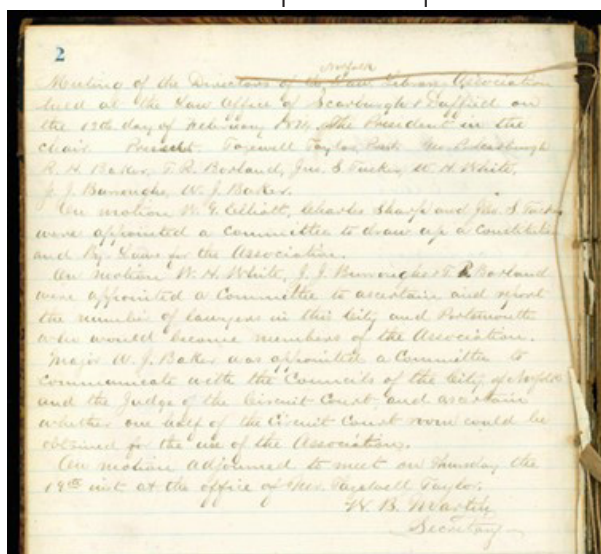 2
Norfolk
Meeting of the Directors of the Law Library Association
held at the Law Office of Scarburgh & Duffield on
the 13th day of February. The President in the
chair. Present Tazewell Taylor, Geo. P. Scarburgh
R. H. Baker, T. R. Borland, Jno. S. Tucker, W. H. White,
J. J. Burroughs, W. J. Baker.
On motion W. G. Elliott, Charles Sharp and Jno. S. Tucker
were appointed a committee to draw up a Constitution
and By-Laws for the Association.
On motion W. H. White, J. J. Burroughs & T. R. Borland
were appointed a Committee to ascertain and report
the number of lawyers in this City and Portsmouth
who would become members of the Association.
Major W. J. Baker was appointed a Committee to
communicate with the Councils of the City of Norfolk
and the Judge of the Circuit Court and ascertain
whether one half of the Circuit Court room could be
obtained for the use of the Association.
On motion adjourned to meet on Thursday the
19th inst. at the office of Mr. Tazewell Taylor.
W. B. Martin
Secretary